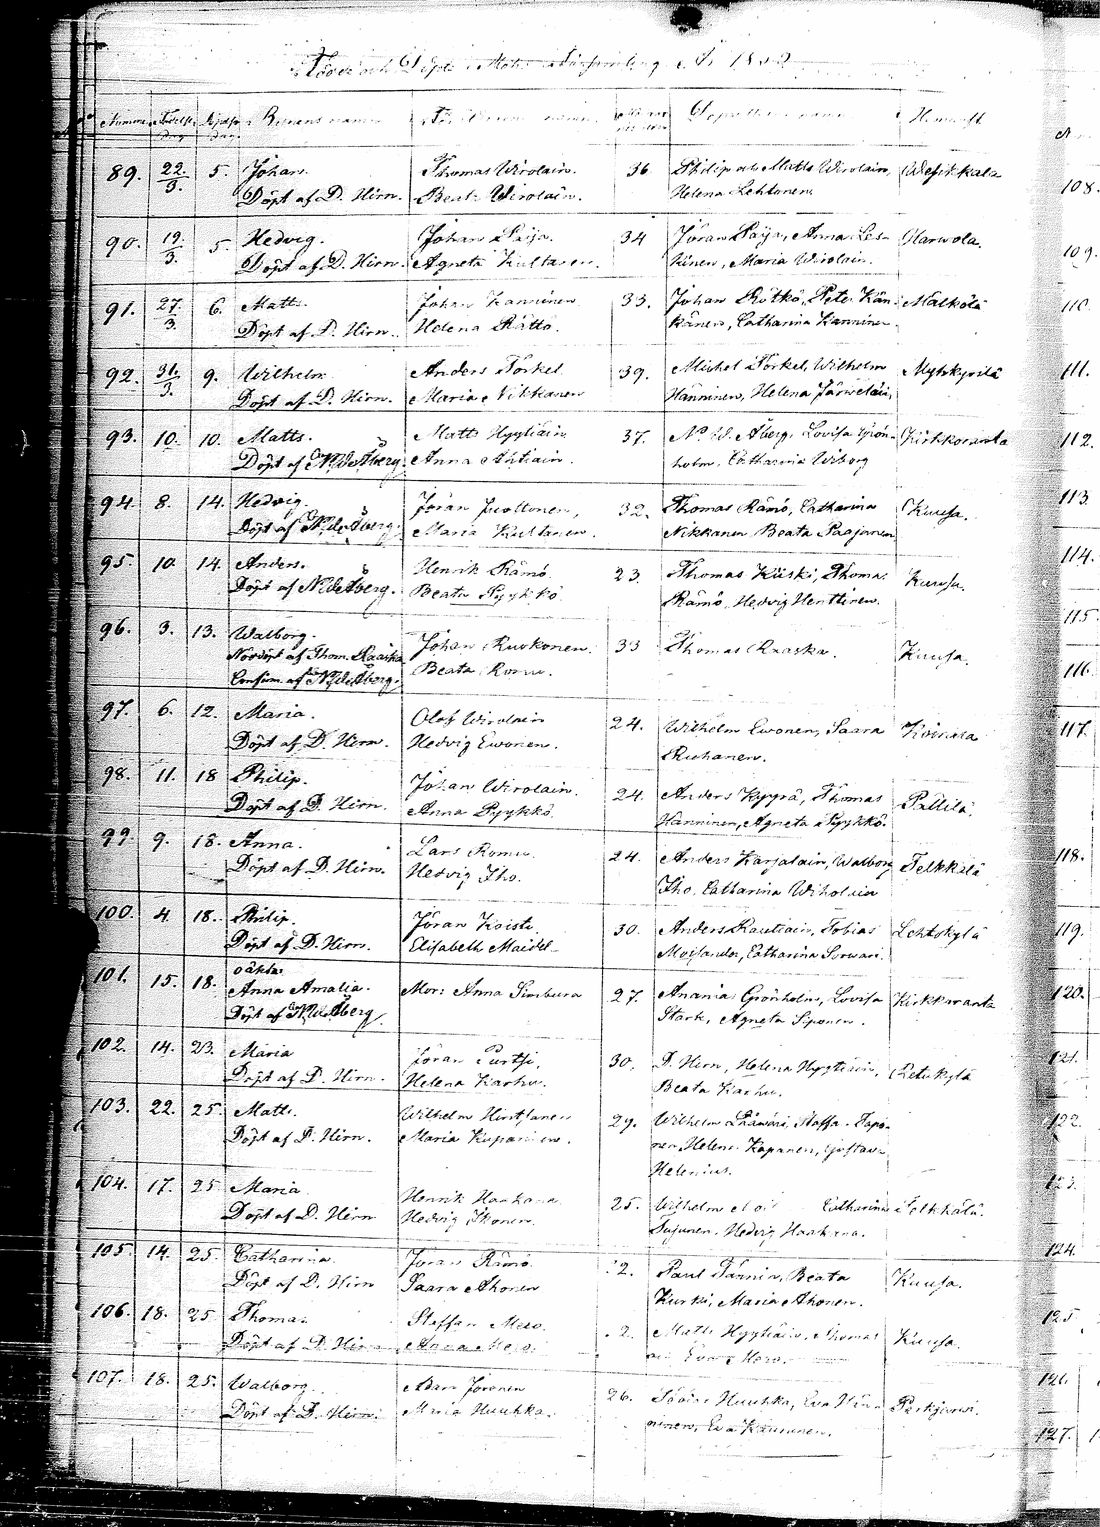 Födde och Döpte i Mola Församling År 18
Nummer Födelse dag Döpelse dag Barnens namn Föräldrarnes namn Hemvist
89. 22/3. 5. Johan. Thomas Wirolain. 36 Philip och Matts Wirolain, Wesikkala
Döpt af D. Hirn. Beata Wirolain. Helena Lehtonen.
90. 19/3. 5. Hedvig. Johan Paija. 34 Jöran Paija, Anna Les- Harwola.
Döpt af D. Hirn. Agneta Kultanen. kinen, Maria Wirolain.
91. 27/3 6. Matts. Johan Kanninen 33. Johan Rötkö, Peter Kän- Mälkölä
Döpt af D. Hirn. Helena Rättö. känen, Catharina Kanninen.
92. 31/3. 9. Wilhelm. Anders Törkel. 39. Michel Törkel, Wilhelm Myhrkyrilä
Döpt af D. Hirn. Maria Nikkanen Hänninen, Helena Järweläin,
93. 10. 10. Matts. Matts Hyytiäin 37. N. W. Åberg, Lovisa Grön- Kirkkoranta
Döpt af N. W. Åberg. Anna Ahtiain. holm, Catharina Wiborg
94. 8. 14. Hedvig. Jöran Juoltonen, 32. Thomas Rämö, Catharina Kuusa.
Döpt af Åberg. Maria Kultanen. Nikkanen Beata Paajanen
95. 10. 14. Anders. Henrik Rämö. 23. Thomas Kiiski, Thomas Kuusa.
Döpt af Åberg. Beata Pyykkö. Rämö, Hedvig Henttinen.
96. 3. 13. Walborg. Johan Ruokonen. 33 Thomas Raaska. Kuusa.
Nöddöpt af Thom. Raaska Beata Romu.
Confirm. af Åberg.
97. 6. 12. Maria. Olof Wirolain 24. Wilhelm Ewonen, Saara
Döpt af D. Hirn. Hedvig Ewonen. Ruhanen.
98. 11. 18 Philip. Johan Wirolain. 24. Anders Kyyrä, Thomas Pällilä.
Döpt af D. Hirn. Anna Pyykkö. Hänninen, Agneta Pyykkö.
99. 9. 18. Anna. Lars Romu. 24. Anders Karjalain, Walborg Telkkälä
Döpt af D. Hirn. Hedvig Iho. Iho, Catharina Wiholain
100. 4. 18. Philip. Jöran Koisti. 30. Anders Rautiain, Tobias Lehtokylä
Döpt af D. Hirn. Elisabeth Maidel- Moisander, Catharina Sorwari.
101. 15. 18. oäkta
Anna Amalia. Mor: Anna Simbura 27. Ananias Grönholm, Lovisa Kirkkoranta
Döpt af Åberg Stark, Agneta Siponen.
102. 14. 23. Maria Jöran Purtsi. 30. D. Hirn, Helena Hyytiäin,
Döpt af D. Hirn. Helena Karhu. Beata Karhu.
103. 22. 25. Matts. Wilhelm 29. Wilhelm Staffa Tapo-
Döpt af D. Hirn. Maria Kupariinen. nen, Helena Kopanen, Gustava
Helenius.
104. 17. 25 Maria. Henrik Haakana 25. Wilhelm Catharina Telkkälä.
Döpt af D. Hirn Hedvig Ikonen. Sujunen, Hedvig Haakana.
105. 14. 25. Catharina. Jöran Rämö. 2. Paul Tarnin, Beata Kuusa.
Döpt af D. Hirn Saara Ahonen Kurki, Maria Ahonen.
106. 18. 25. Thomas. Steffan Mero. 2. Matts Hyytiäin, Thomas Kuusa.
Döpt af D. Hirn Anna Mero. Eva Mero.
107. 18. 25. Walborg. Adam Joronen 26. Tobias Huuhka, Eva Hän- Perkjärwi.
Döpt af D. Hirn. Maria Huuhka. ninen, Eva Kaurinen.
108.
109.
110.
111.
112.
113.
114.
115
116
117.
118.
119.
120.
121.
122.
123.
124.
125.
126.
127.